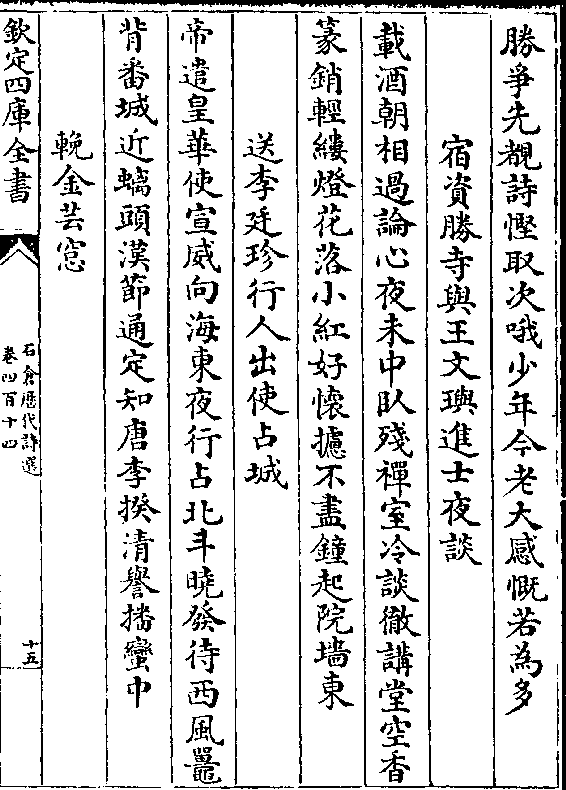 勝爭先覩詩慳取次哦少年今老大感慨若為多
宿資勝寺與王文璵進士夜談
載酒朝相過論心夜未中臥殘禪室冷談徹講堂空香
篆銷輕縷燈花落小紅好懷攄不盡鐘起院墻東
送李廷珍行人出使占城
帝遣皇華使宣威向海東夜行占北斗曉發待西風鼉
背番城近螭頭漢節通定知唐李揆清譽播蠻中
輓金芸窓
欽定四庫全書
石倉歷代詩選
卷四百十四
十五